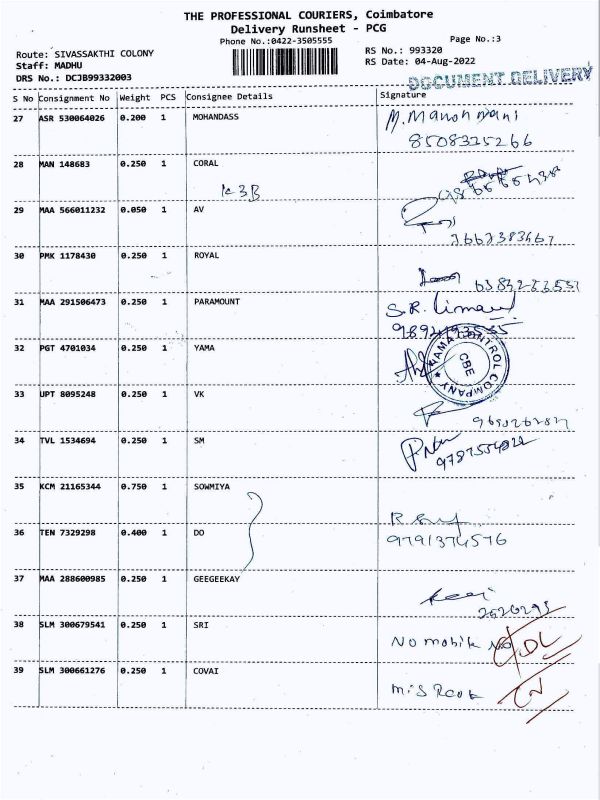 THE PROFESSIONAL COURIERS, Coimbatore
Delivery Runsheet - PCG
Phone No.:0422-3505555
Page No.:3
Route: SIVASSAKTHI COLONY
RS No.: 993320
Staff: MADHU
RS Date: 04-Aug-2022
DRS No.: DCJB99332003
DOCUMENT DELIVERY
S No Consignment No Weight PCS Consignee Details Signature
27 ASR 530064026 0.200 1 MOHANDASS M. Manonmani
8508325266
28 MAN 148683 0.250 1 CORAL
K3B
29 MAA 566011232 0.050 1 AV
30 PMK 1178430 0.250 1 ROYAL
31 MAA 291506473 0.250 1 PARAMOUNT S.R.
32 PGT 4701034 0.250 1 YAMA
YAMA CONTROL COMPANY
CBE
33 UPT 8095248 0.250 1 VK
34 TVL 1534694 0.250 1 SM
35 KCM 21165344 0.750 1 SOWMIYA
36 TEN 7329298 0.400 1 DO 9791374576
37 MAA 288600985 0.250 1 GEEGEEKAY
38 SLM 300679541 0.250 1 SRI No mobile No
39 SLM 300661276 0.250 1 COVAI